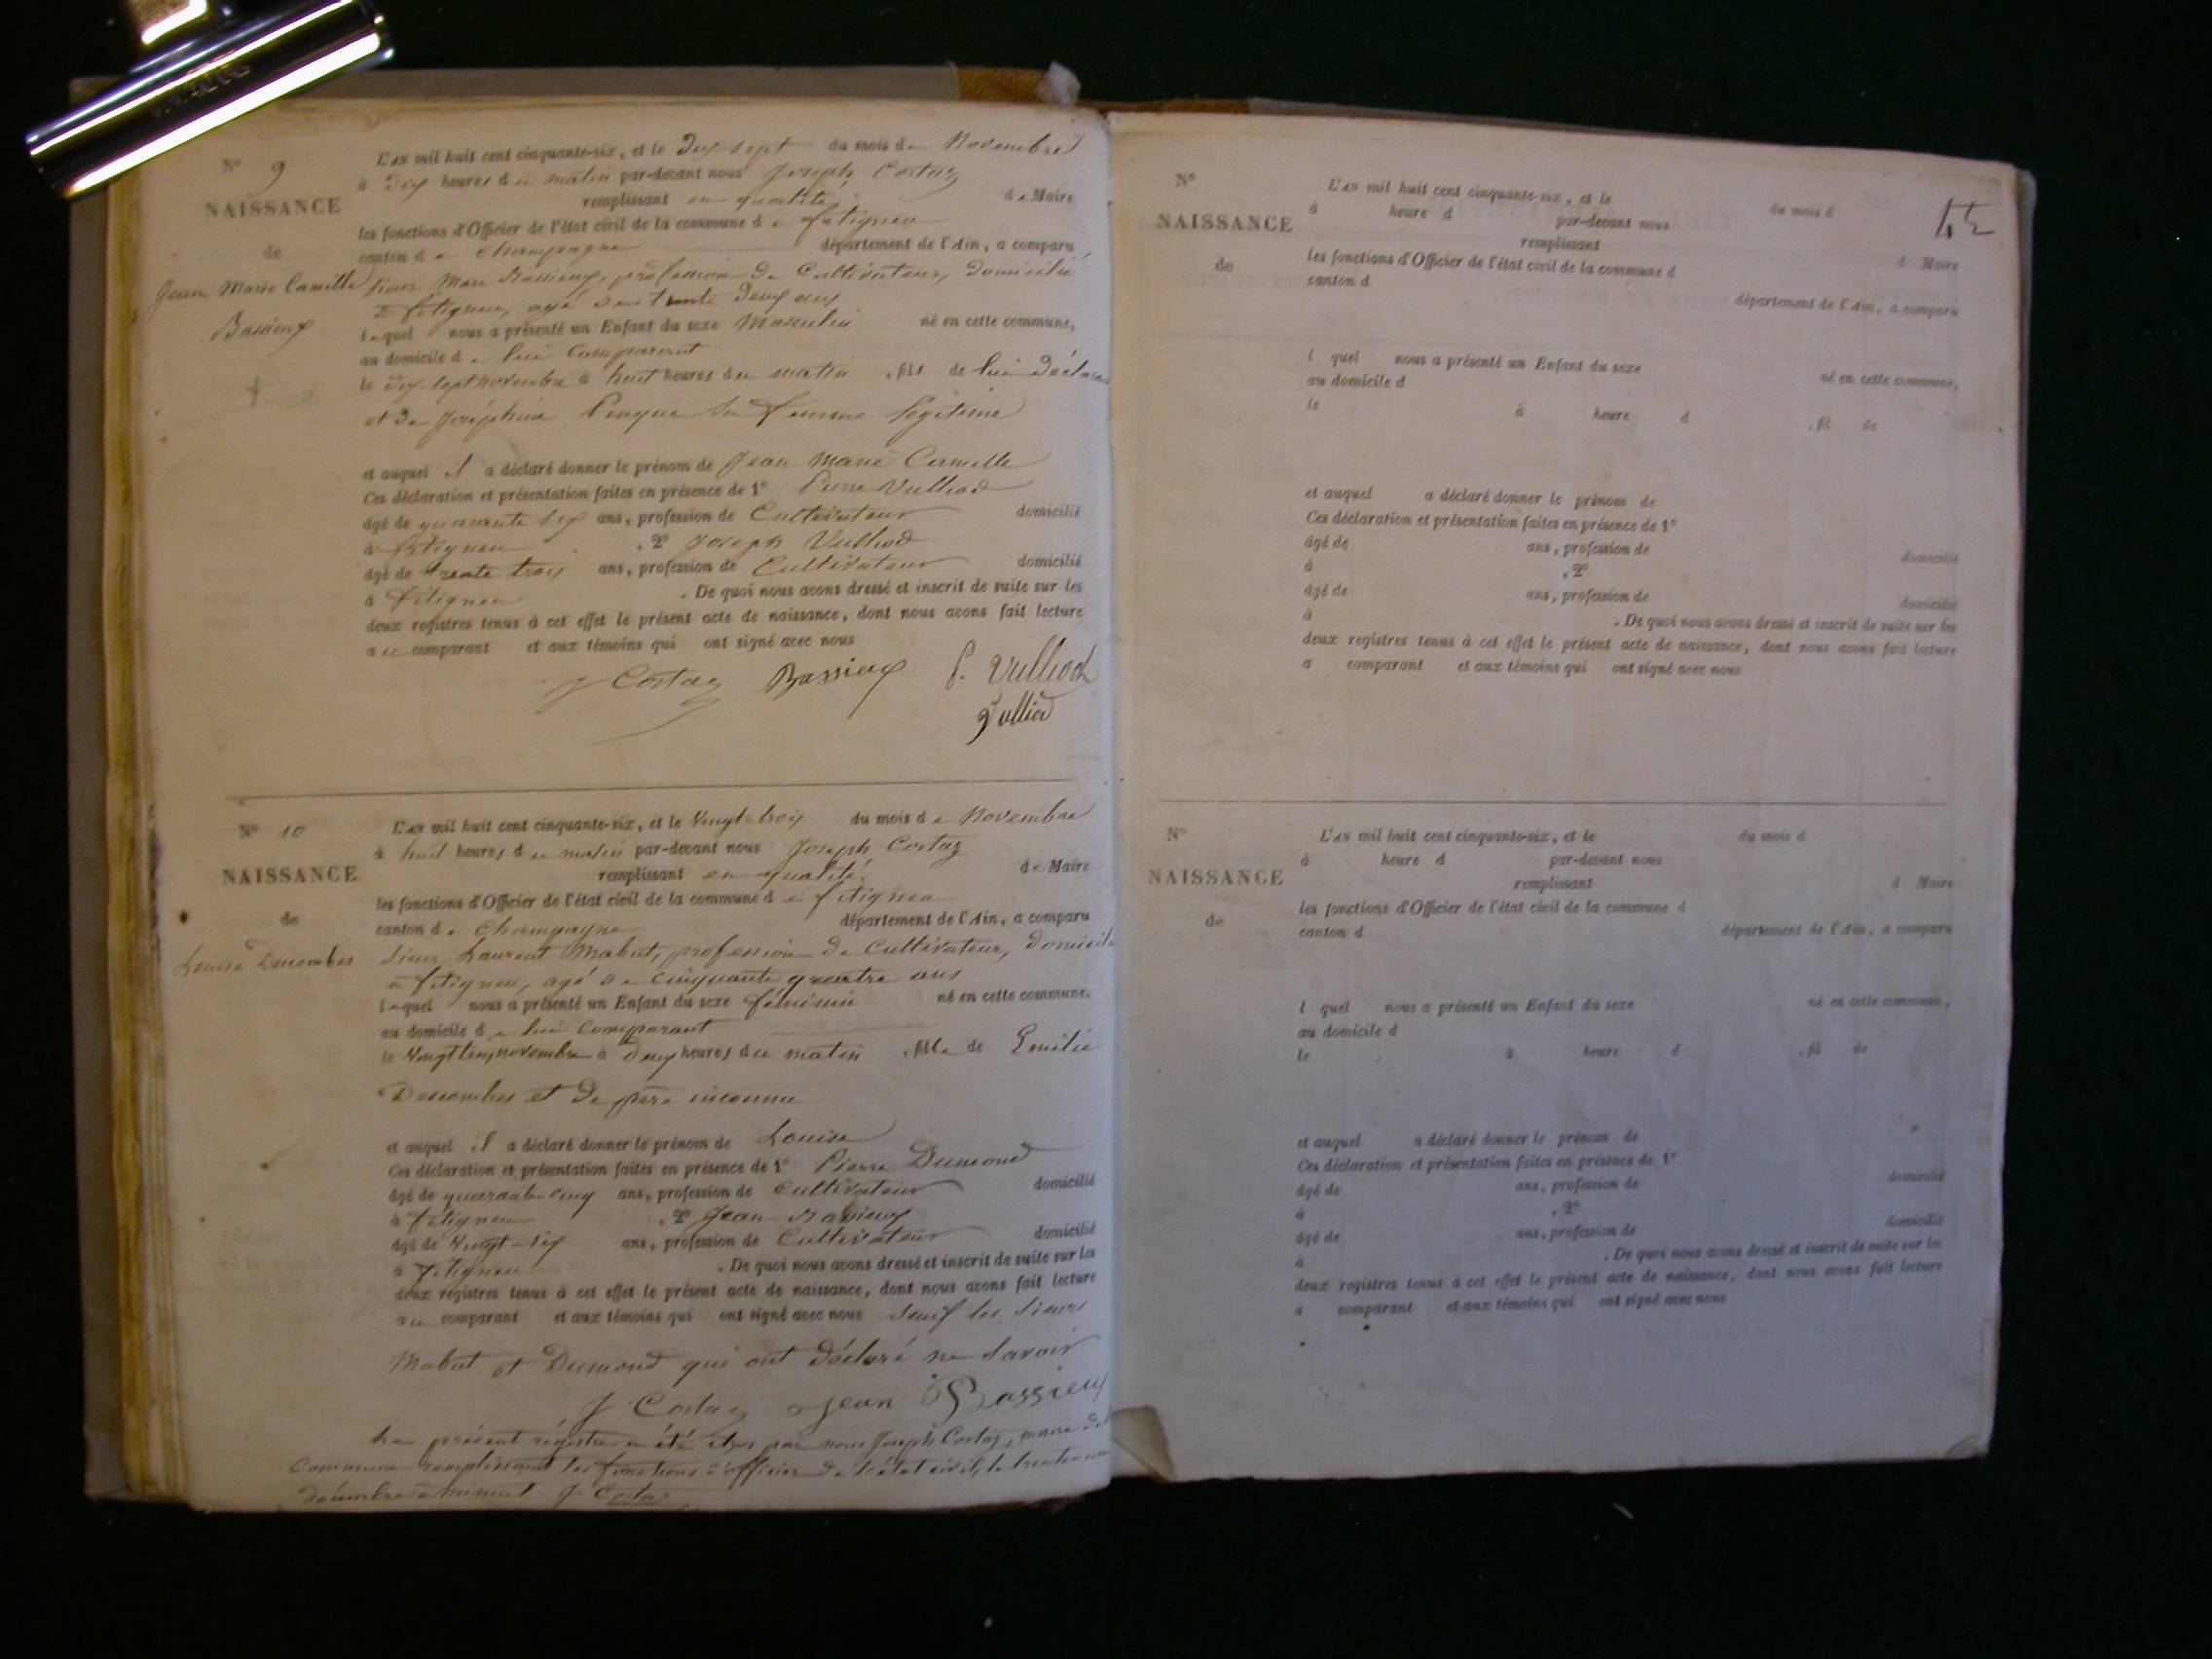 N° 9
NAISSANCE
de
Jean Marie Camille
Bassieux
L'AN mil huit cent cinquante-six, et le Dix-sept du mois de Novembre
à Dix heures du matin par-devant nous Joseph Costaz
remplissant en qualité de Maire
les fonctions d'Officier de l'état civil de la commune de fitigneu
canton de Champagne département de l'Ain, a comparu
sieur Marc Bassieux, profession de Cultivateur, Domicilié
à fitigneu, agé de trente Deux ans
lequel nous a présenté un Enfant du sexe Masculin né en cette commune,
au domicile de lui Comparant
le Dix-sept novembre à huit heures du matin , fils de lui Déclarant
et De Joséphine sa femme légitime
et auquel il a déclaré donner le prénom de Jean Marie Camille
Ces déclaration et présentation faites en présence de 1° Pierre Vulliod
âgé de quarante six ans, profession de Cultivateur domicilié
à fitigneu , 2° Joseph Vulliod
âgé de trente trois ans, profession de Cultivateur domicilié
à fitigneu . De quoi nous avons dressé et inscrit de suite sur les
deux registres tenus à cet effet le présent acte de naissance, dont nous avons fait lecture
au comparant et aux témoins qui ont signé avec nous
J Costaz Bassieux P. Vulliod
Vulliod
N° 10
NAISSANCE
de
Louise Descombes
L'AN mil huit cent cinquante-six, et le Vingt-trois du mois de Novembre
à huit heures du matin par-devant nous Joseph Costaz
remplissant en qualité de Maire
les fonctions d'Officier de l'état civil de la commune de fitigneu
canton de Champagne département de l'Ain, a comparu
sieur Laurent Mabut, profession de Cultivateur, Domicilié
à fitigneu, agé de cinquante quatre ans
lequel nous a présenté un Enfant du sexe féminin né en cette commune,
au domicile de lui Comparant
le Vingt trois novembre à Deux heures du matin , fille de Emilie
Descombes et De père inconnu
et auquel il a déclaré donner le prénom de Louise
Ces déclaration et présentation faites en présence de 1° Pierre Dumond
âgé de quarante cinq ans, profession de Cultivateur domicilié
à fitigneu , 2° Jean Bassieux
âgé de Vingt-six ans, profession de Cultivateur domicilié
à fitigneu . De quoi nous avons dressé et inscrit de suite sur les
deux registres tenus à cet effet le présent acte de naissance, dont nous avons fait lecture
au comparant et aux témoins qui ont signé avec nous Sauf les Sieurs
Mabut et Dumond qui ont Déclaré ne Savoir
J Costaz Jean Bassieux
Le présent régistre a été clos par nous Joseph Costaz, maire de
Commune remplissant les fonctions d'officier De l'état civil, le trente un
Décembre à minuit J Costaz
N°
NAISSANCE
de
L'AN mil huit cent cinquante-six, et le du mois d
à heure d par-devant nous
remplissant d Maire
les fonctions d'Officier de l'état civil de la commune d
canton d département de l'Ain, a comparu
l quel nous a présenté un Enfant du sexe né en cette commune,
au domicile d
le à heure d , fil de
et auquel a déclaré donner le prénom de
Ces déclaration et présentation faites en présence de 1°
âgé de ans, profession de domicilié
à , 2°
âgé de ans, profession de domicilié
à . De quoi nous avons dressé et inscrit de suite sur les
deux registres tenus à cet effet le présent acte de naissance, dont nous avons fait lecture
a comparant et aux témoins qui ont signé avec nous
N°
NAISSANCE
de
L'AN mil huit cent cinquante-six, et le du mois d
à heure d par-devant nous
remplissant d Maire
les fonctions d'Officier de l'état civil de la commune d
canton d département de l'Ain, a comparu
l quel nous a présenté un Enfant du sexe né en cette commune,
au domicile d
le à heure d , fil de
et auquel a déclaré donner le prénom de
Ces déclaration et présentation faites en présence de 1°
âgé de ans, profession de domicilié
à , 2°
âgé de ans, profession de domicilié
à . De quoi nous avons dressé et inscrit de suite sur les
deux registres tenus à cet effet le présent acte de naissance, dont nous avons fait lecture
a comparant et aux témoins qui ont signé avec nous